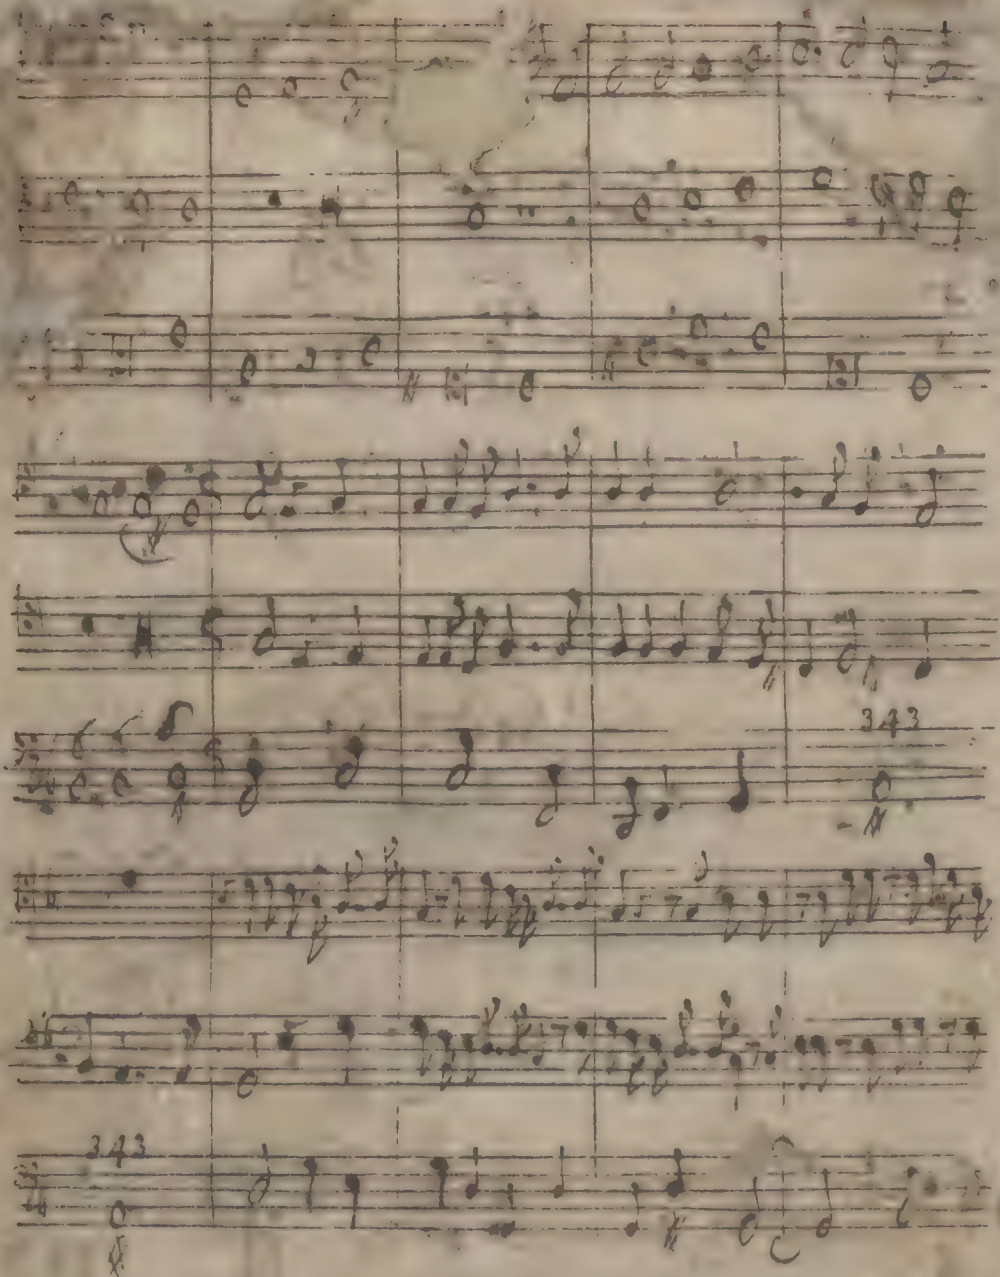 343
343